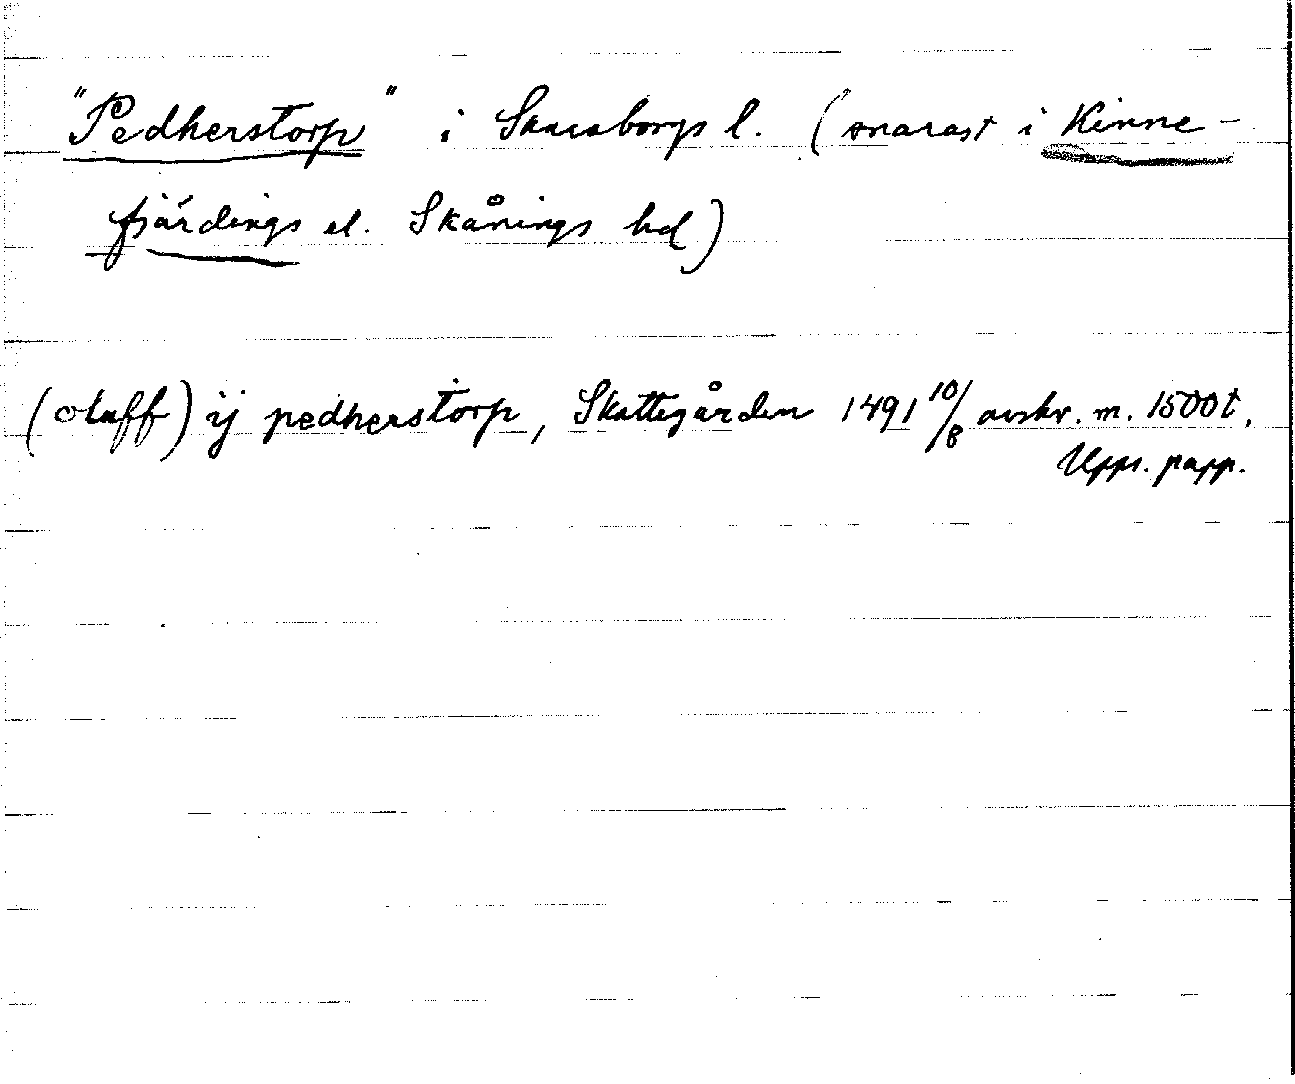 "Pedherstorp" i Skaraborgs l. (snarast i Kinne-
fjärdings el. Skånings hd)
(olaff) ij pedherstorp, Skattegården 1491 10/8 avskr. m. 1500t.
Upps. papp.